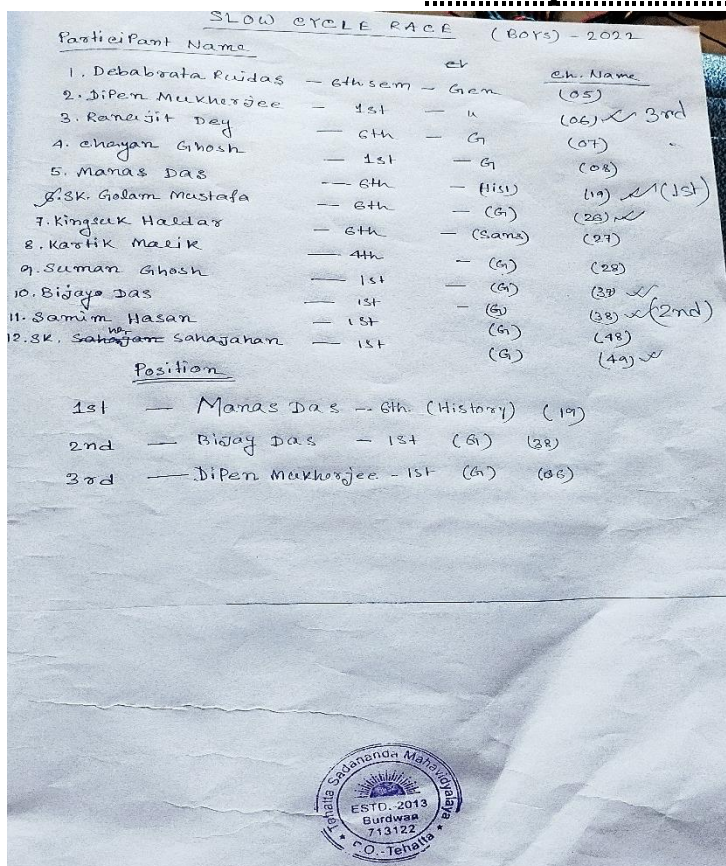 SLOW CYCLE RACE (BOYS) - 2022
Participant Name Ch. Name
1. Debabrata Ruidas — 6th sem — Gen (05)
2. Dipen Mukherjee — 1st — " (06) 3rd
3. Ranajit Dey — 6th — G (07)
4. Chayan Ghosh — 1st — G (08)
5. Manas Das — 6th — (Hist) (19) (1st)
6. SK. Golam Mustafa — 6th — (G) (26)
7. Kingsuk Haldar — 6th — (Sans) (27)
8. Kartik Malik — 4th — (G) (28)
9. Suman Ghosh — 1st — (G)
10. Bijaya Das — 1st — (G) (38) (2nd)
11. Samim Hasan — 1st (G) (48)
12. SK. Sahajahan — 1st (G) (49)
Position
1st — Manas Das — 6th. (History) (19)
2nd — Bijay Das — 1st (G) (38)
3rd — Dipen Mukherjee - 1st (G) (06)
Tehatta Sadananda Mahavidyalaya
ESTD.-2013
Burdwan
713122
P.O.-Tehatta